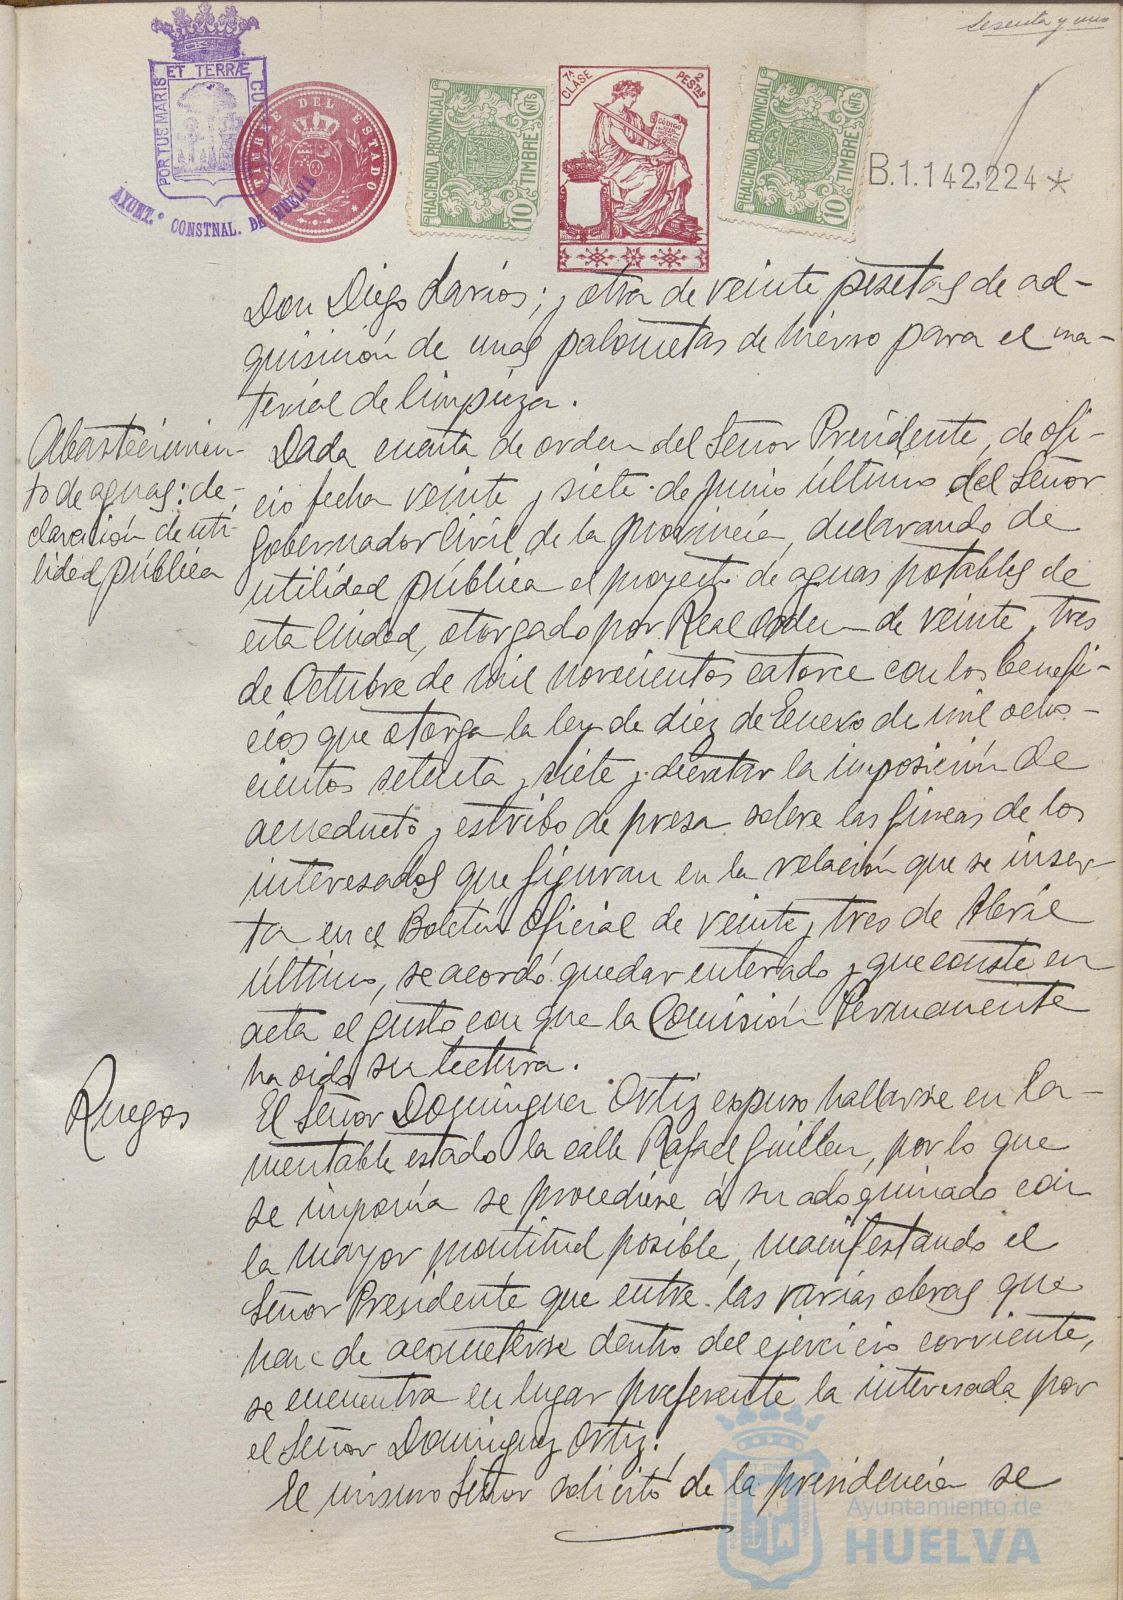 Sesenta y uno
PORTUS MARIS ET TERRÆ CUSTODIA
AYUNT.º CONSTNAL. DE HUELVA
TIMBRE DEL ESTADO
HACIENDA PROVINCIAL 10 CNTS TIMBRE
7ª CLASE 2 PESTAS
CODIGO
HACIENDA PROVINCIAL 10 CNTS TIMBRE
B.1.142.224*
Don Diego Larios; y otra de veinte pesetas de ad-
quisición de unas palometas de hierro para el ma-
terial de limpieza.
Abastecimien-
to de aguas: de-
claración de uti-
lidad pública
Dada cuenta de orden del Señor Presidente, de ofi-
cio fecha veinte y siete de junio último del Señor
Gobernador Civil de la provincia, declarando de
utilidad pública el proyecto de aguas potables de
esta Ciudad, otorgado por Real Orden de veinte y tres
de Octubre de mil novecientos catorce con los benefi-
cios que otorga la ley de diez de Enero de mil ocho-
cientos setenta y siete y decretar la imposición de
acueducto y estribo de presa sobre las fincas de los
interesados que figuran en la relación que se inser-
ta en el Boletín Oficial de veinte y tres de Abril
último, se acordó quedar enterado y que conste en
acta el gusto con que la Comisión Permanente
ha oido su lectura.
Ruegos
El Señor Dominguez Ortiz expuso hallarse en la-
mentable estado la calle Rafael Guillen, por lo que
se imponía se procediese á su adoquinado con
la mayor prontitud posible, manifestando el
Señor Presidente que entre las varias obras que
han de acometerse dentro del ejercicio corriente,
se encuentra en lugar preferente la interesada por
el Señor Dominguez Ortiz.
El mismo Señor solicitó de la presidencia se
Ayuntamiento de
HUELVA